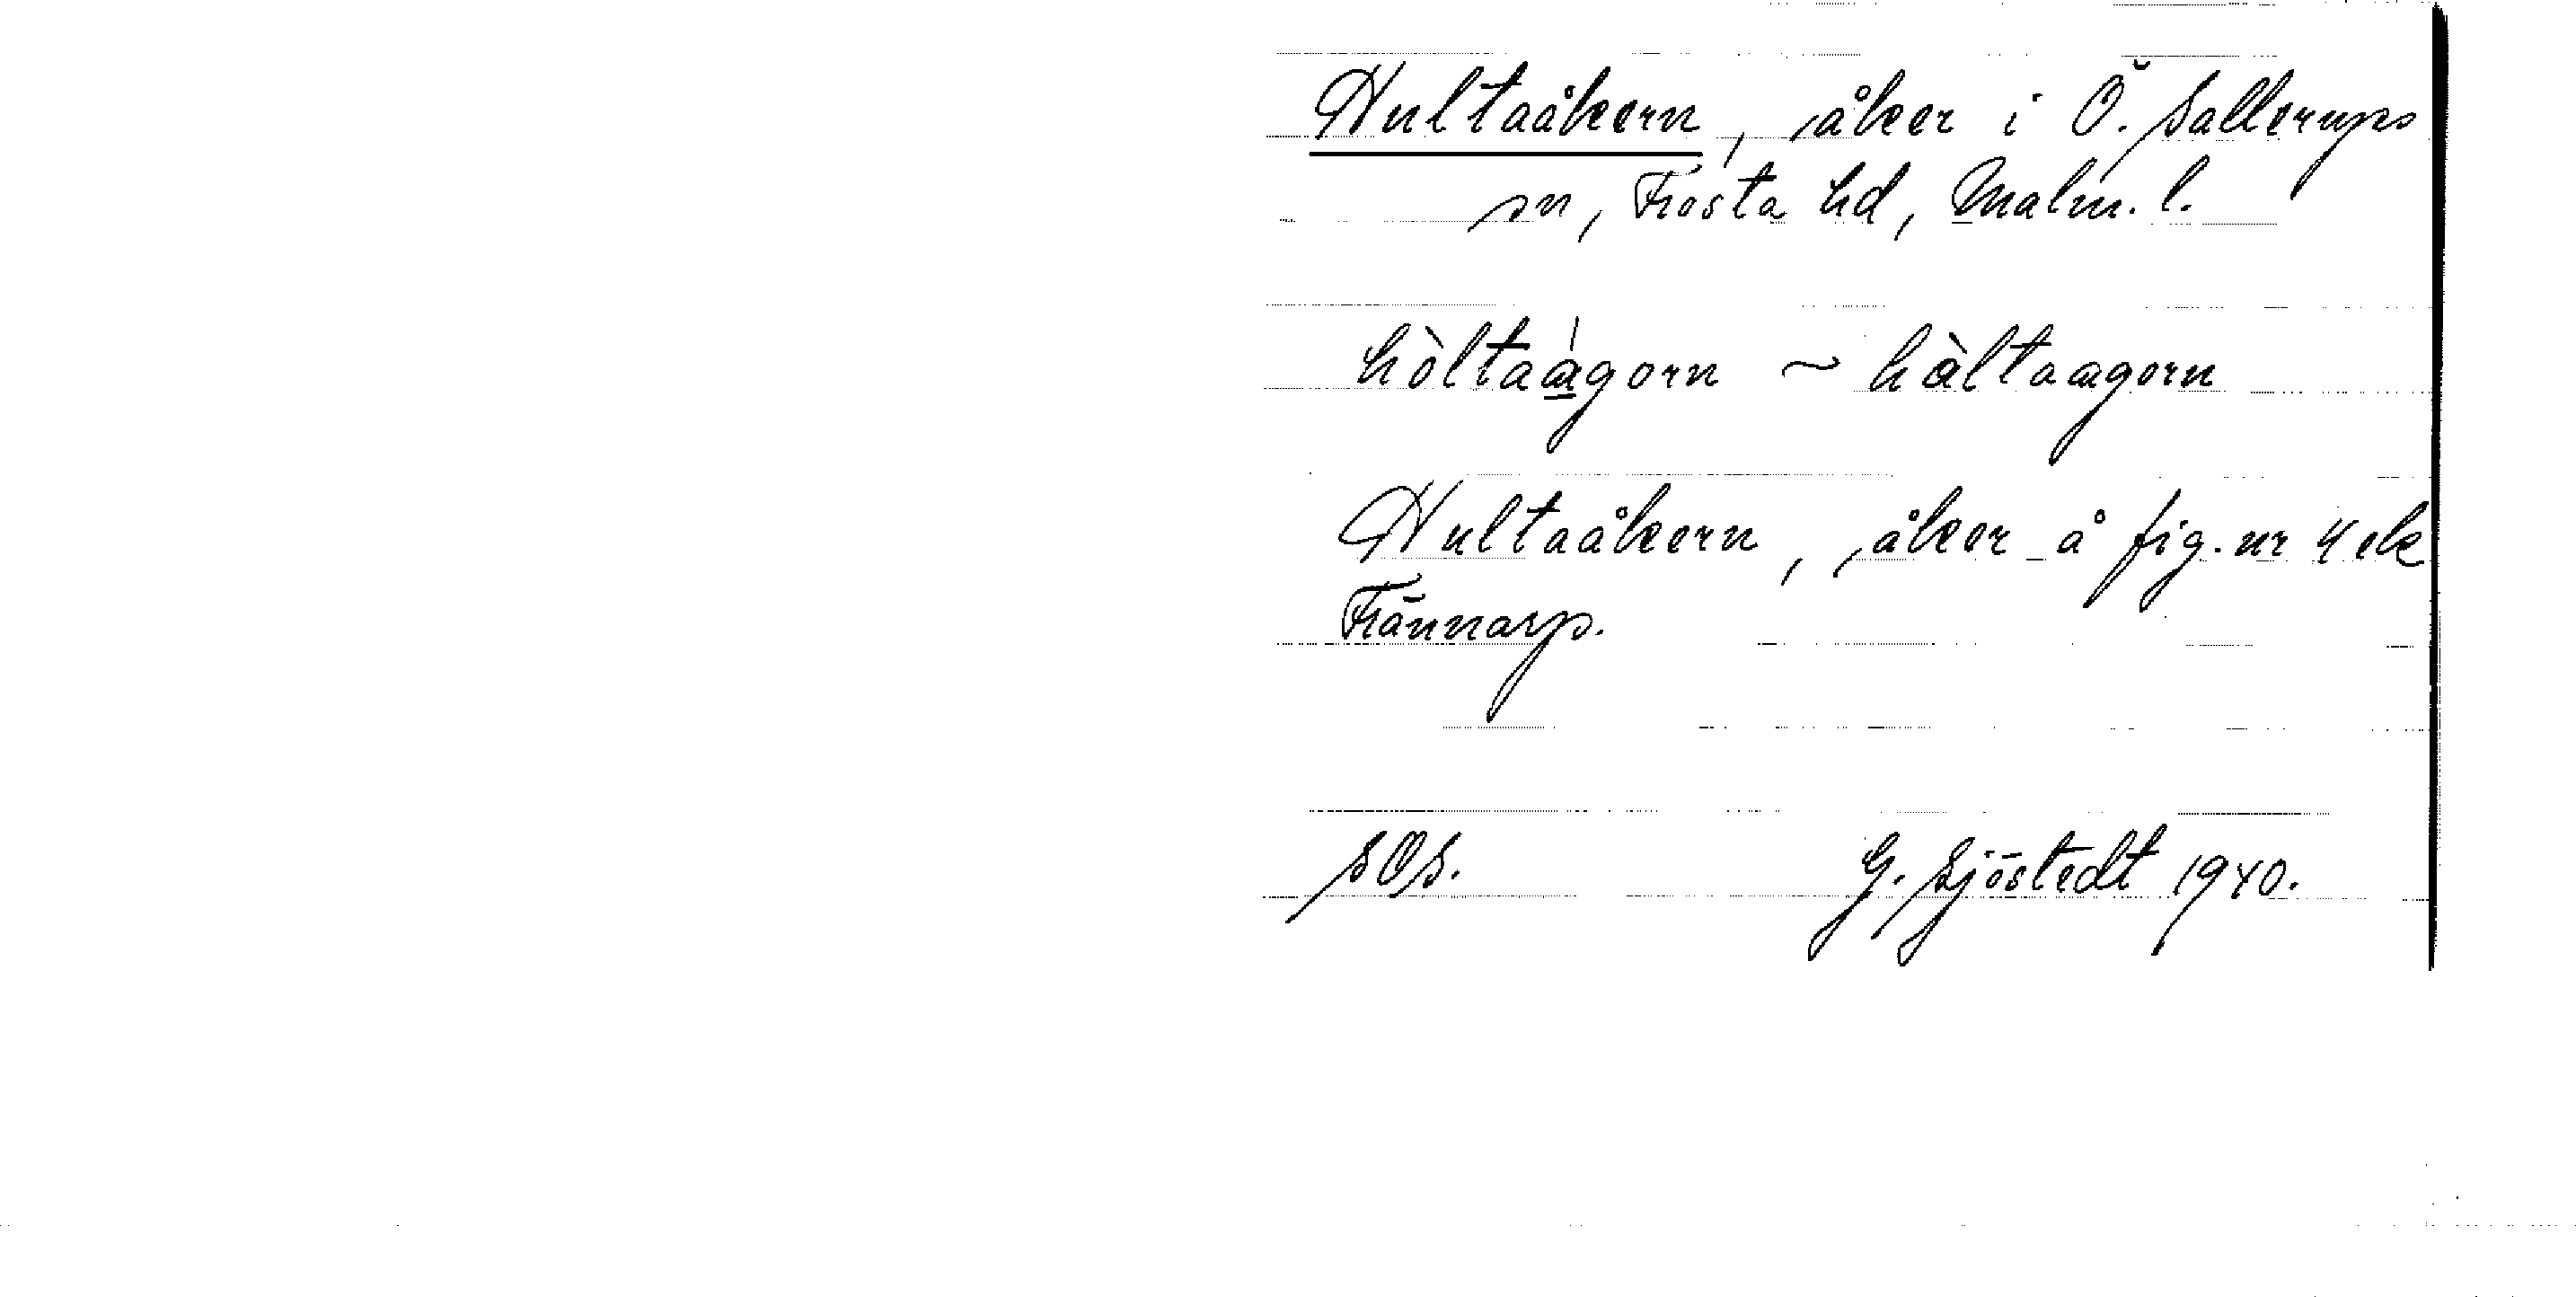 Hultaåkern, åker i Ö. Sallerups
sn, Frosta hd, Malm. l.
hòltaàgorn ~ hàltaagorn
Hultaåkern, åker å fig. nr 4 ek
Frännarp.
SOS. G. Sjöstedt 1940.